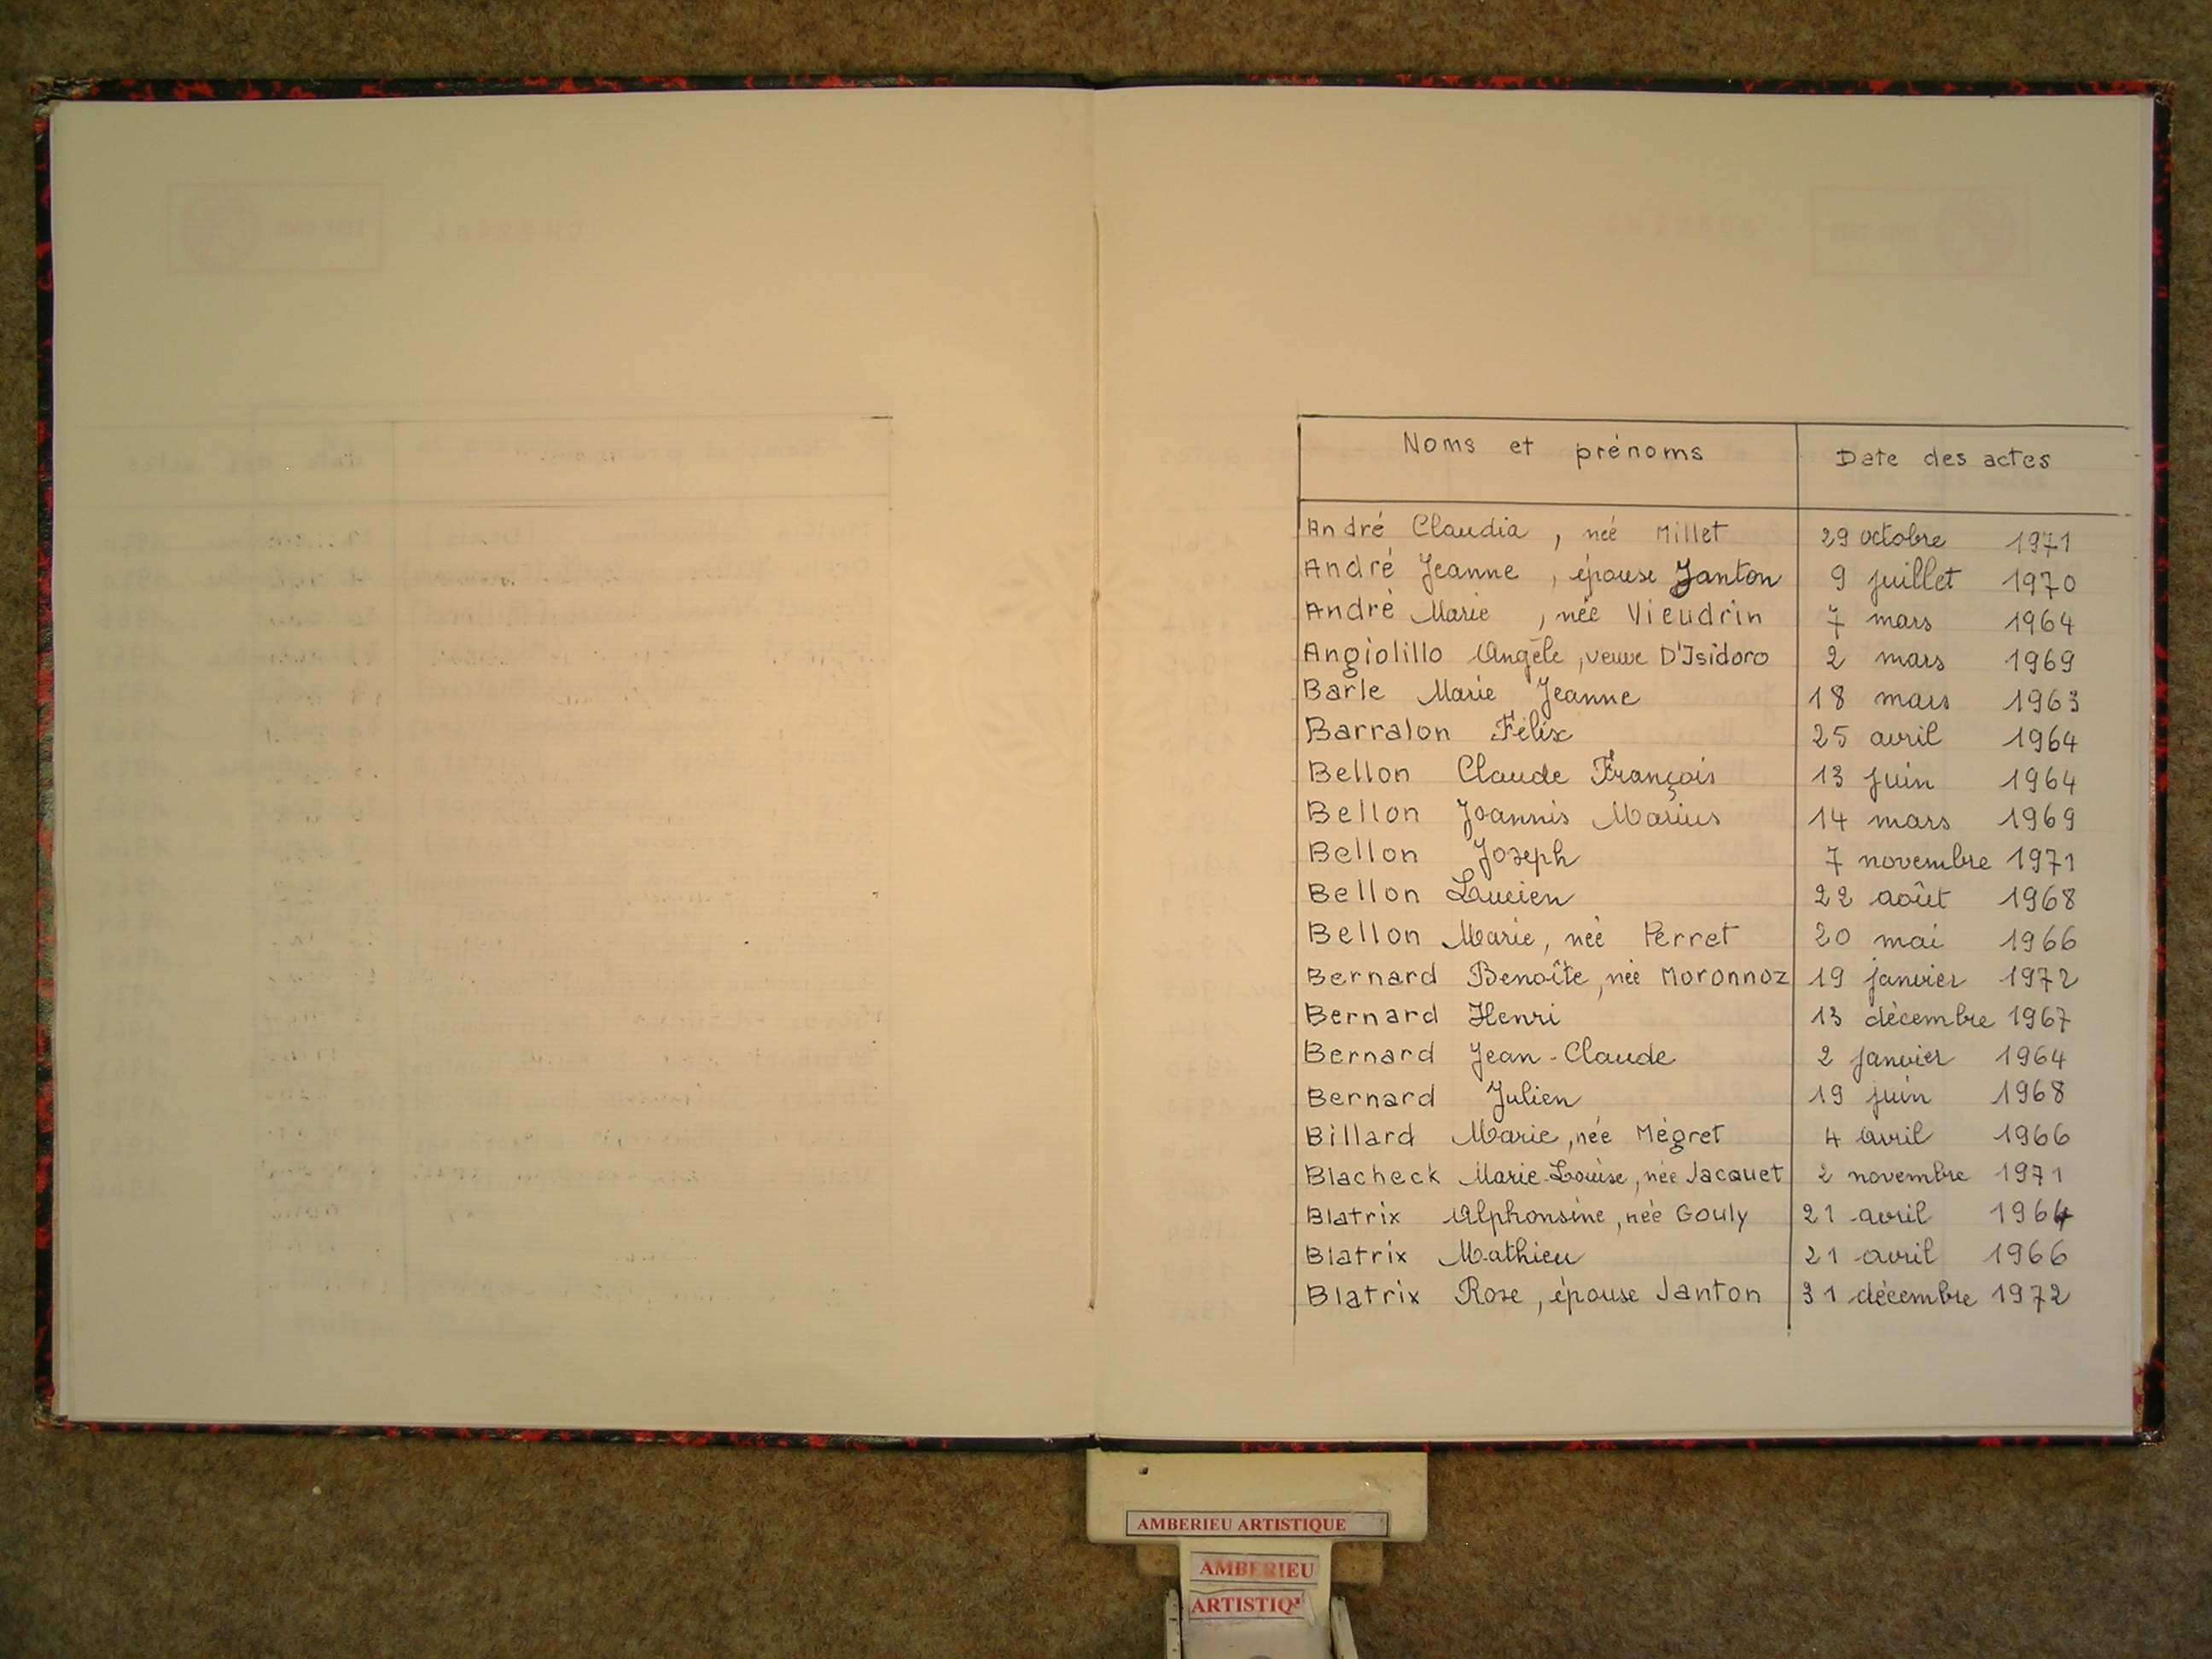 Noms et prénoms Date des actes
André Claudia, née Millet 29 octobre 1971
André Jeanne, épouse Janton 9 juillet 1970
André Marie, née Vieudrin 7 mars 1964
Angiolillo Angèle, veuve D'Isidoro 2 mars 1969
Barle Marie Jeanne 18 mars 1963
Barralon Félix 25 avril 1964
Bellon Claude François 13 juin 1964
Bellon Joannis Marius 14 mars 1969
Bellon Joseph 7 novembre 1971
Bellon Lucien 22 août 1968
Bellon Marie, née Perret 20 mai 1966
Bernard Benoîte, née Moronnoz 19 janvier 1972
Bernard Henri 13 décembre 1967
Bernard Jean-Claude 2 janvier 1964
Bernard Julien 19 juin 1968
Billard Marie, née Mégret 4 avril 1966
Blacheck Marie-Louise, née Jacquet 2 novembre 1971
Blatrix Alphonsine, née Gouly 21 avril 1964
Blatrix Mathieu 21 avril 1966
Blatrix Rose, épouse Janton 31 décembre 1972
AMBERIEU ARTISTIQUE
AMBERIEU
ARTISTIQ